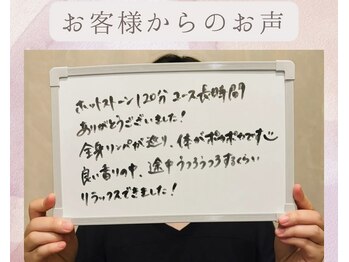 お客様からのお声
ホットストーン120分コース長時間
ありがとうございました！
全身リンパが巡り、体がポカポカです
良い香りの中、途中うつろうつろするくらい
リラックスできました！